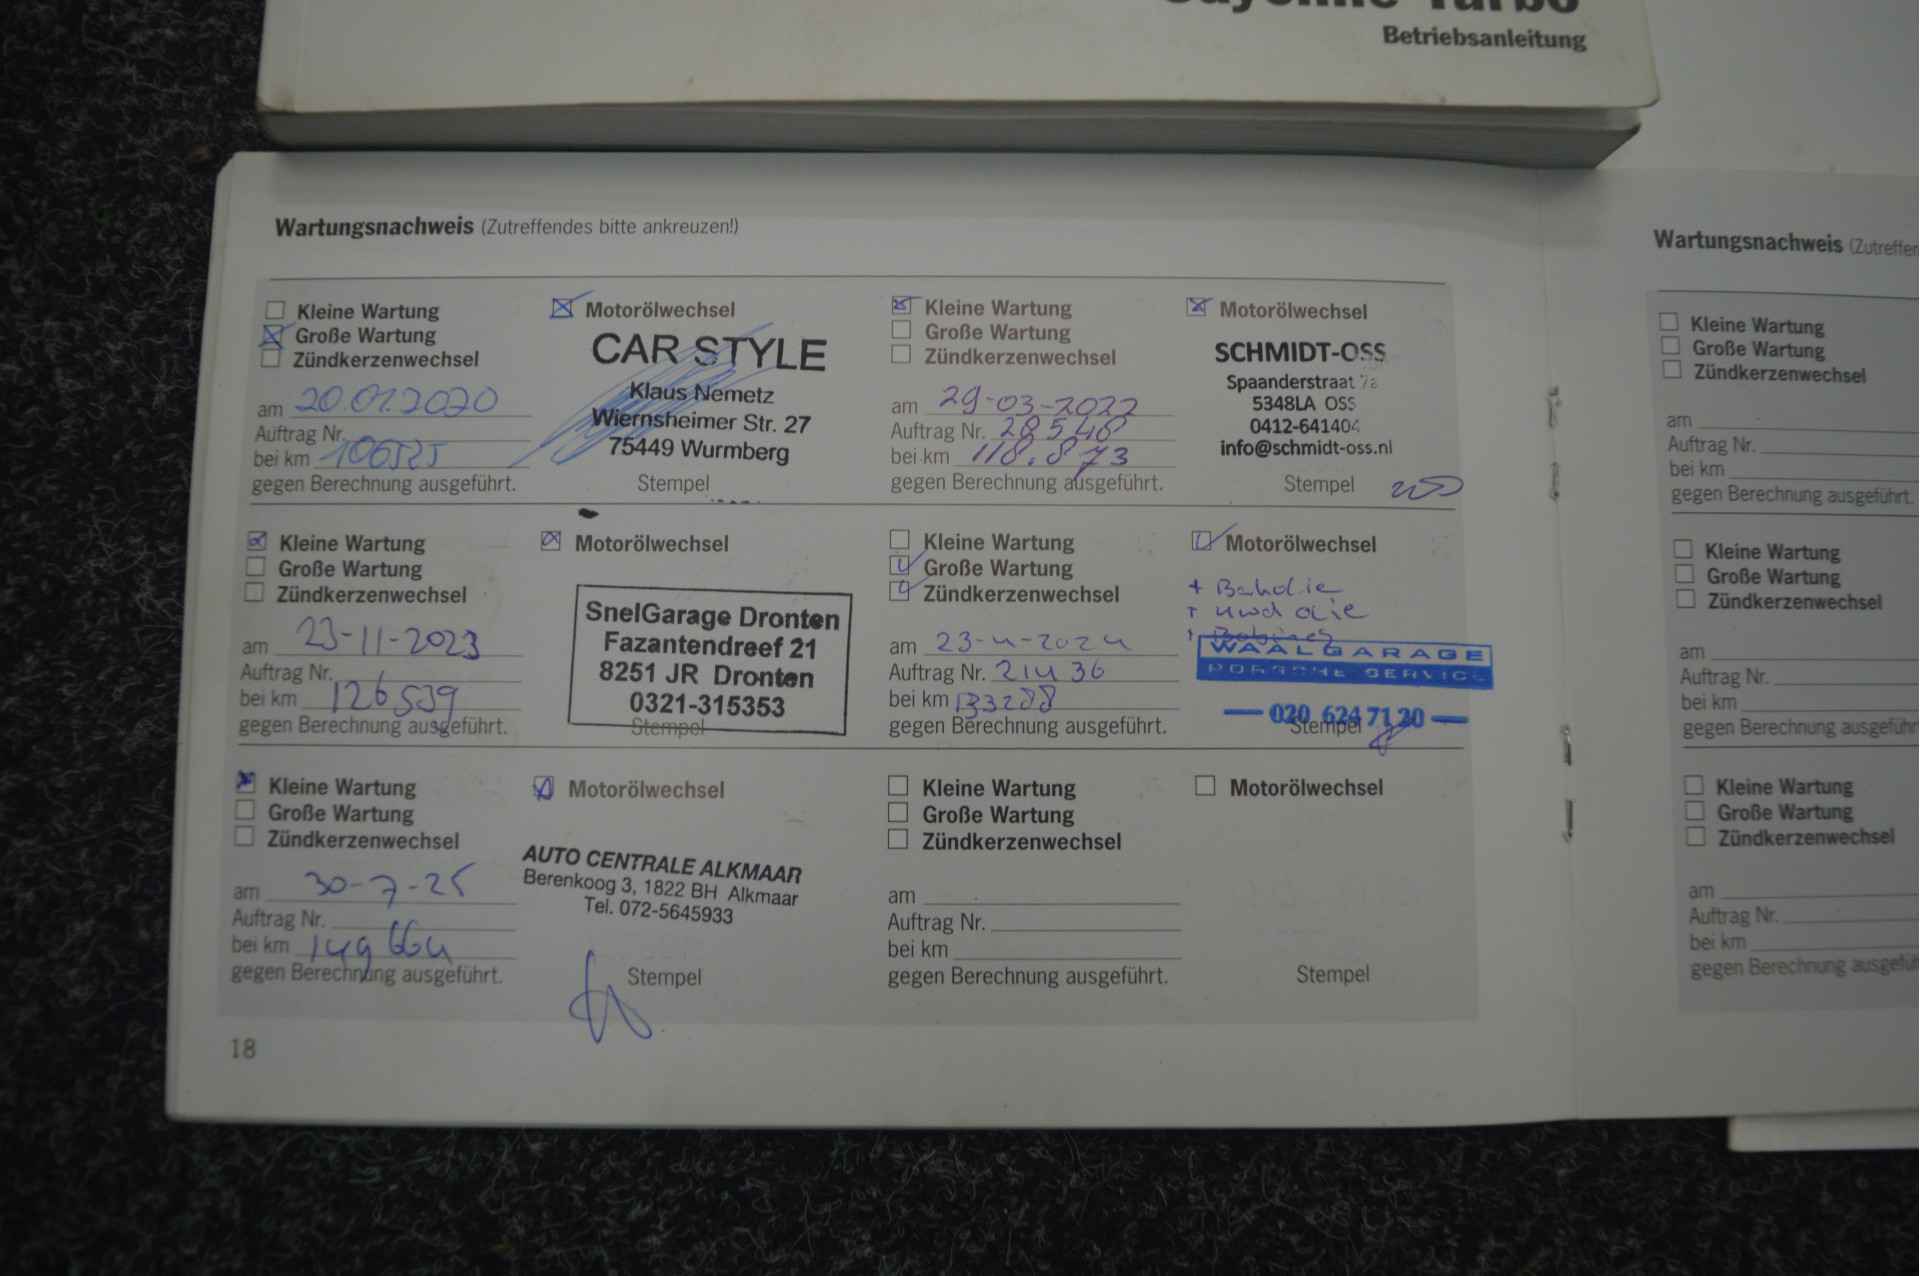 Cayenne Turbo
Betriebsanleitung
Wartungsnachweis (Zutreffendes bitte ankreuzen!)
Kleine Wartung
Große Wartung
Zündkerzenwechsel
am 20.01.2020
Auftrag Nr.
bei km 106525
gegen Berechnung ausgeführt.
Motorölwechsel
CAR STYLE
Klaus Nemetz
Wiernsheimer Str. 27
75449 Wurmberg
Stempel
Kleine Wartung
Große Wartung
Zündkerzenwechsel
am 29-03-2022
Auftrag Nr. 28548
bei km 118.873
gegen Berechnung ausgeführt.
Motorölwechsel
SCHMIDT-OSS
Spaanderstraat 7a
5348LA OSS
0412-641404
info@schmidt-oss.nl
Stempel
Kleine Wartung
Große Wartung
Zündkerzenwechsel
am 23-11-2023
Auftrag Nr.
bei km 126539
gegen Berechnung ausgeführt.
Motorölwechsel
SnelGarage Dronten
Fazantendreef 21
8251 JR Dronten
0321-315353
Stempel
Kleine Wartung
Große Wartung
Zündkerzenwechsel
am 23-4-2024
Auftrag Nr. 21436
bei km 133288
gegen Berechnung ausgeführt.
Motorölwechsel
+
+
+ Bobines
WAALGARAGE
PORSCHE SERVICE
— 020 624 71 20 —
Stempel
Kleine Wartung
Große Wartung
Zündkerzenwechsel
am 30-7-25
Auftrag Nr.
bei km 149664
gegen Berechnung ausgeführt.
Motorölwechsel
AUTO CENTRALE ALKMAAR
Berenkoog 3, 1822 BH Alkmaar
Tel. 072-5645933
Stempel
Kleine Wartung
Große Wartung
Zündkerzenwechsel
am
Auftrag Nr.
bei km
gegen Berechnung ausgeführt.
Motorölwechsel
Stempel
18
Wartungsnachweis (Zutreffen
Kleine Wartung
Große Wartung
Zündkerzenwechsel
am
Auftrag Nr.
bei km
gegen Berechnung ausgeführt.
Kleine Wartung
Große Wartung
Zündkerzenwechsel
am
Auftrag Nr.
bei km
gegen Berechnung ausgeführ
Kleine Wartung
Große Wartung
Zündkerzenwechsel
am
Auftrag Nr.
bei km
gegen Berechnung ausgefüh